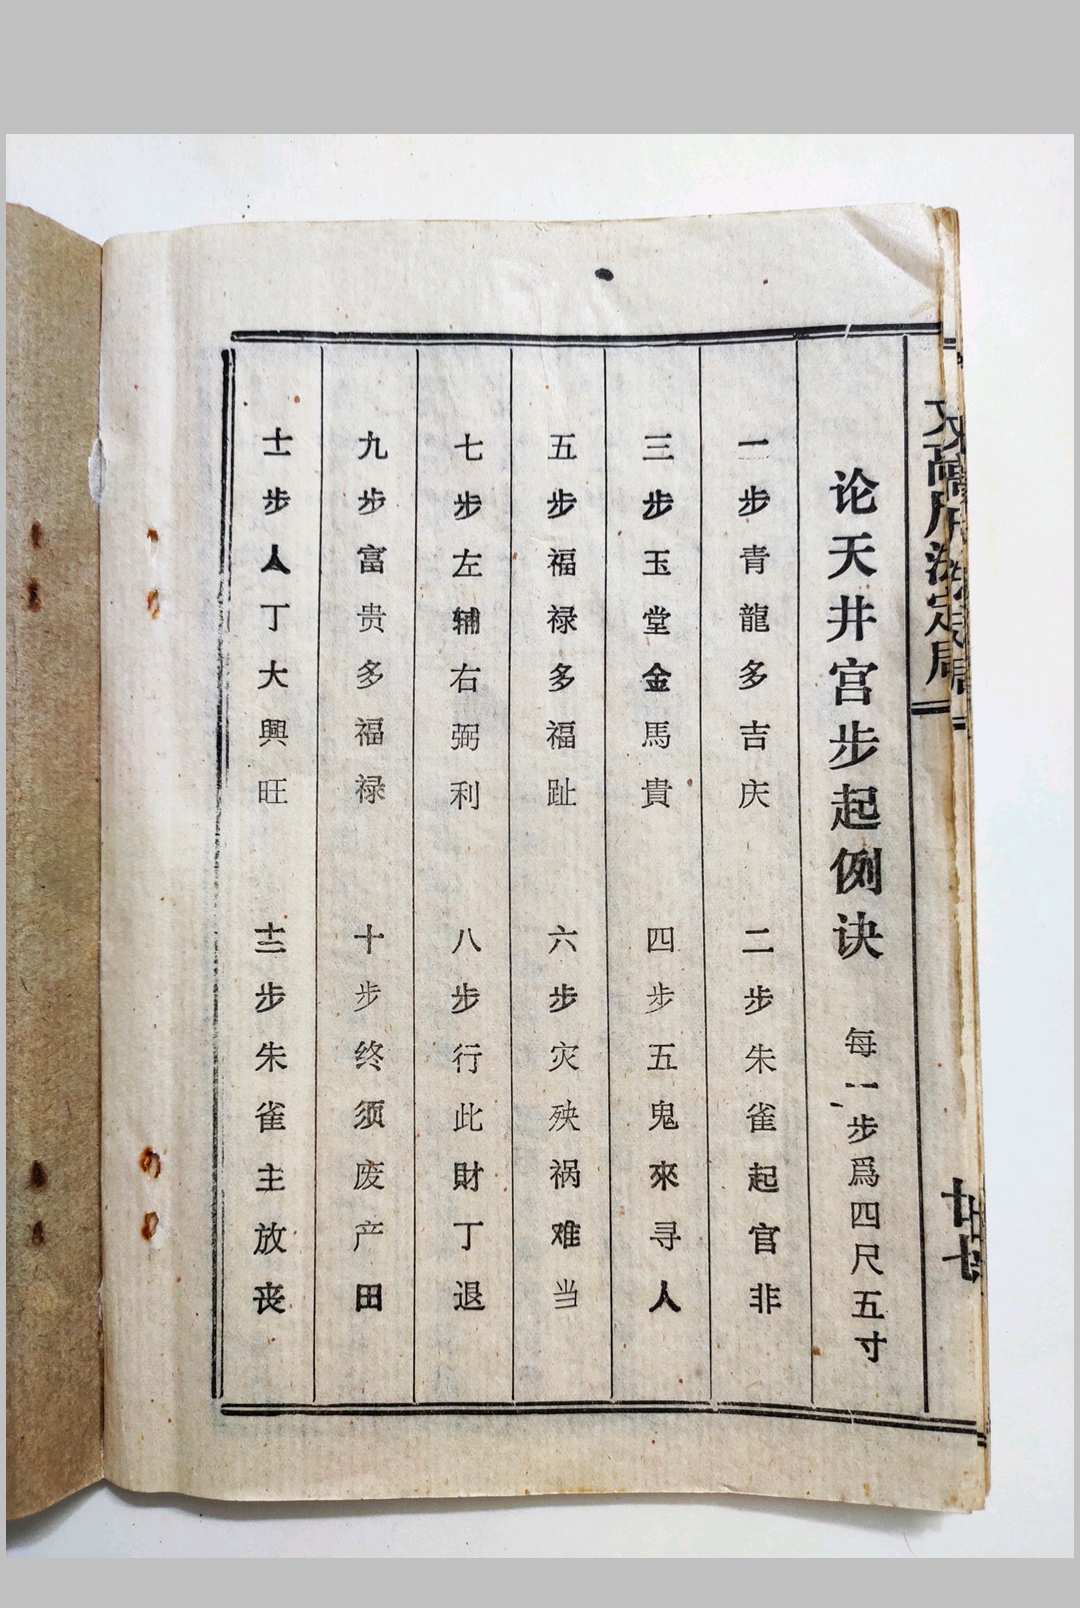 论天井宫步起例诀 每一步爲四尺五寸
一步青龍多吉庆 二步朱雀起官非
三步玉堂金馬貴 四步五鬼來寻人
五步福禄多福趾 六步灾殃祸难当
七步左辅右弼利 八步行此財丁退
九步富贵多福禄 十步终须废产田
十一步人丁大興旺 十二步朱雀主放丧